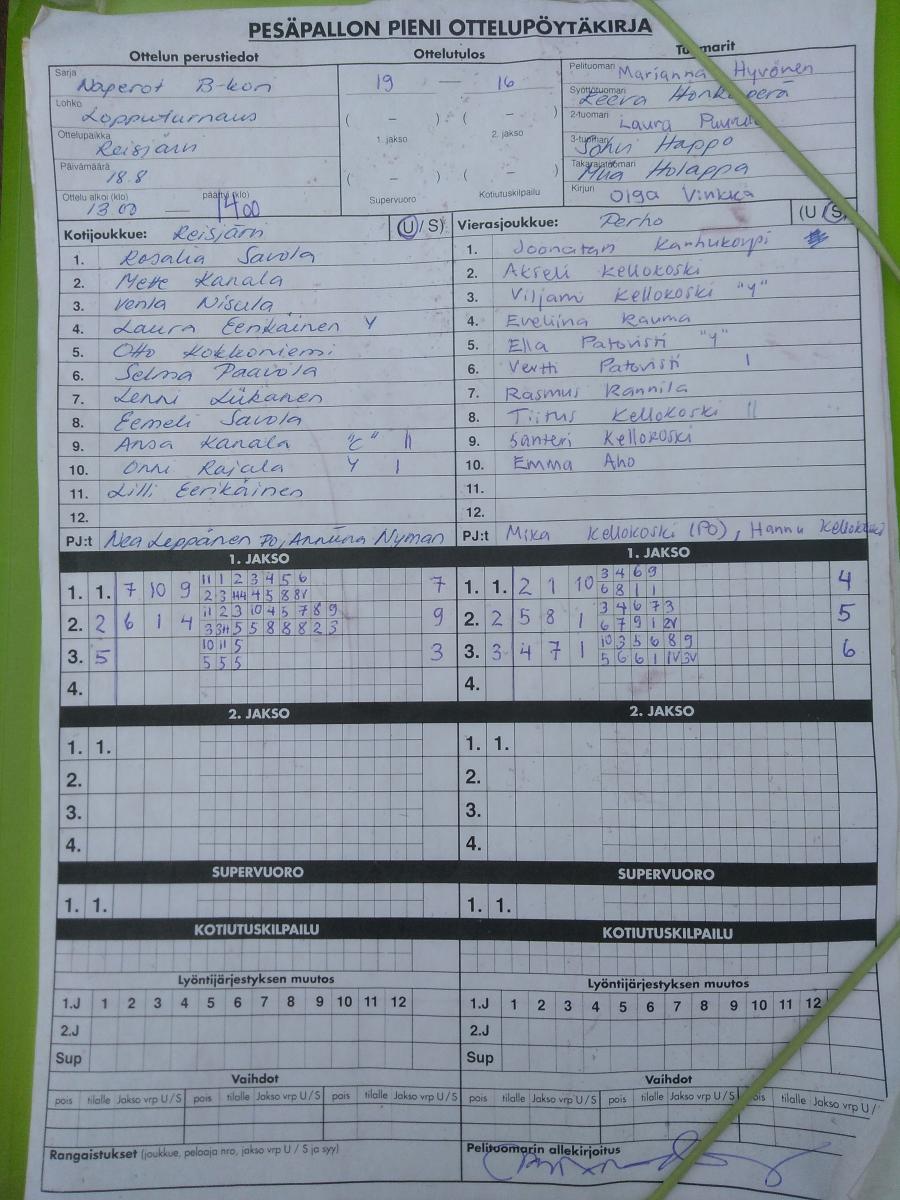 PESÄPALLON PIENI OTTELUPÖYTÄKIRJA
Ottelun perustiedot
Ottelutulos
Tuomarit
Sarja Naperot B-kori
Lohko Lopputurnaus
Ottelupaikka Reisjärvi
Päivämäärä 18.8
Ottelu alkoi (klo) päättyi (klo)
13.00 — 14.00
19 — 16
( – ) ( – )
1. jakso 2. jakso
( – ) ( – )
Supervuoro Kotiutuskilpailu
Pelituomari Marianna Hyvönen
Syöttötuomari Honkaperä
2-tuomari Laura
3-tuomari Happo
Takarajatuomari Holappa
Kirjuri Olga Vinkka
Kotijoukkue: Reisjärvi (U/S)
1. Rosalia Savola
2. Mette Kanala
3. Venla Nisula
4. Laura Eerikäinen Y
5. Otto Kokkoniemi
6. Selma Paavola
7. Lenni Liikanen
8. Eemeli Savola
9. Ansa Kanala "C" ||
10. Onni Rajala Y |
11. Lilli Eerikäinen
12.
PJ:t Nea Leppänen PO, Anniina Nyman
Vierasjoukkue: Perho (U/S)
1. Joonatan Kanhukorpi
2. Akseli Kellokoski
3. Viljami Kellokoski "Y"
4. Eveliina Rauma
5. Ella Patovisti "Y"
6. Vertti Patovisti |
7. Rasmus Rannila
8. Tiitus Kellokoski ||
9. Santeri Kellokoski
10. Emma Aho
11.
12.
PJ:t Mika Kellokoski (PO), Hannu Kellokoski
1. JAKSO
1. 1. 7 10 9 11 1 2 3 4 5 6 7
2. 2 6 1 4 11 2 3 10 4 5 7 8 9 9
3. 5 10 11 5 3
5 5 5
4.
1. JAKSO
1. 1. 2 1 10 3 4 6 9 4
6 8 1 1
2. 2 5 8 1 3 4 6 7 3 5
6 7 9 1 2V
3. 3 4 7 1 10 3 5 6 8 9 6
5 6 6 1 1V 3V
4.
2. JAKSO
1. 1.
2.
3.
4.
2. JAKSO
1. 1.
2.
3.
4.
SUPERVUORO
1. 1.
SUPERVUORO
1. 1.
KOTIUTUSKILPAILU
KOTIUTUSKILPAILU
Lyöntijärjestyksen muutos
1.J 1 2 3 4 5 6 7 8 9 10 11 12
2.J
Sup
Lyöntijärjestyksen muutos
1.J 1 2 3 4 5 6 7 8 9 10 11 12
2.J
Sup
Vaihdot
pois tilalle Jakso vrp U / S pois tilalle Jakso vrp U / S pois tilalle Jakso vrp U / S
Vaihdot
pois tilalle Jakso vrp U / S pois tilalle Jakso vrp U / S pois tilalle Jakso vrp U /
Rangaistukset (joukkue, pelaaja nro, jakso vrp U / S ja syy)
Pelituomarin allekirjoitus